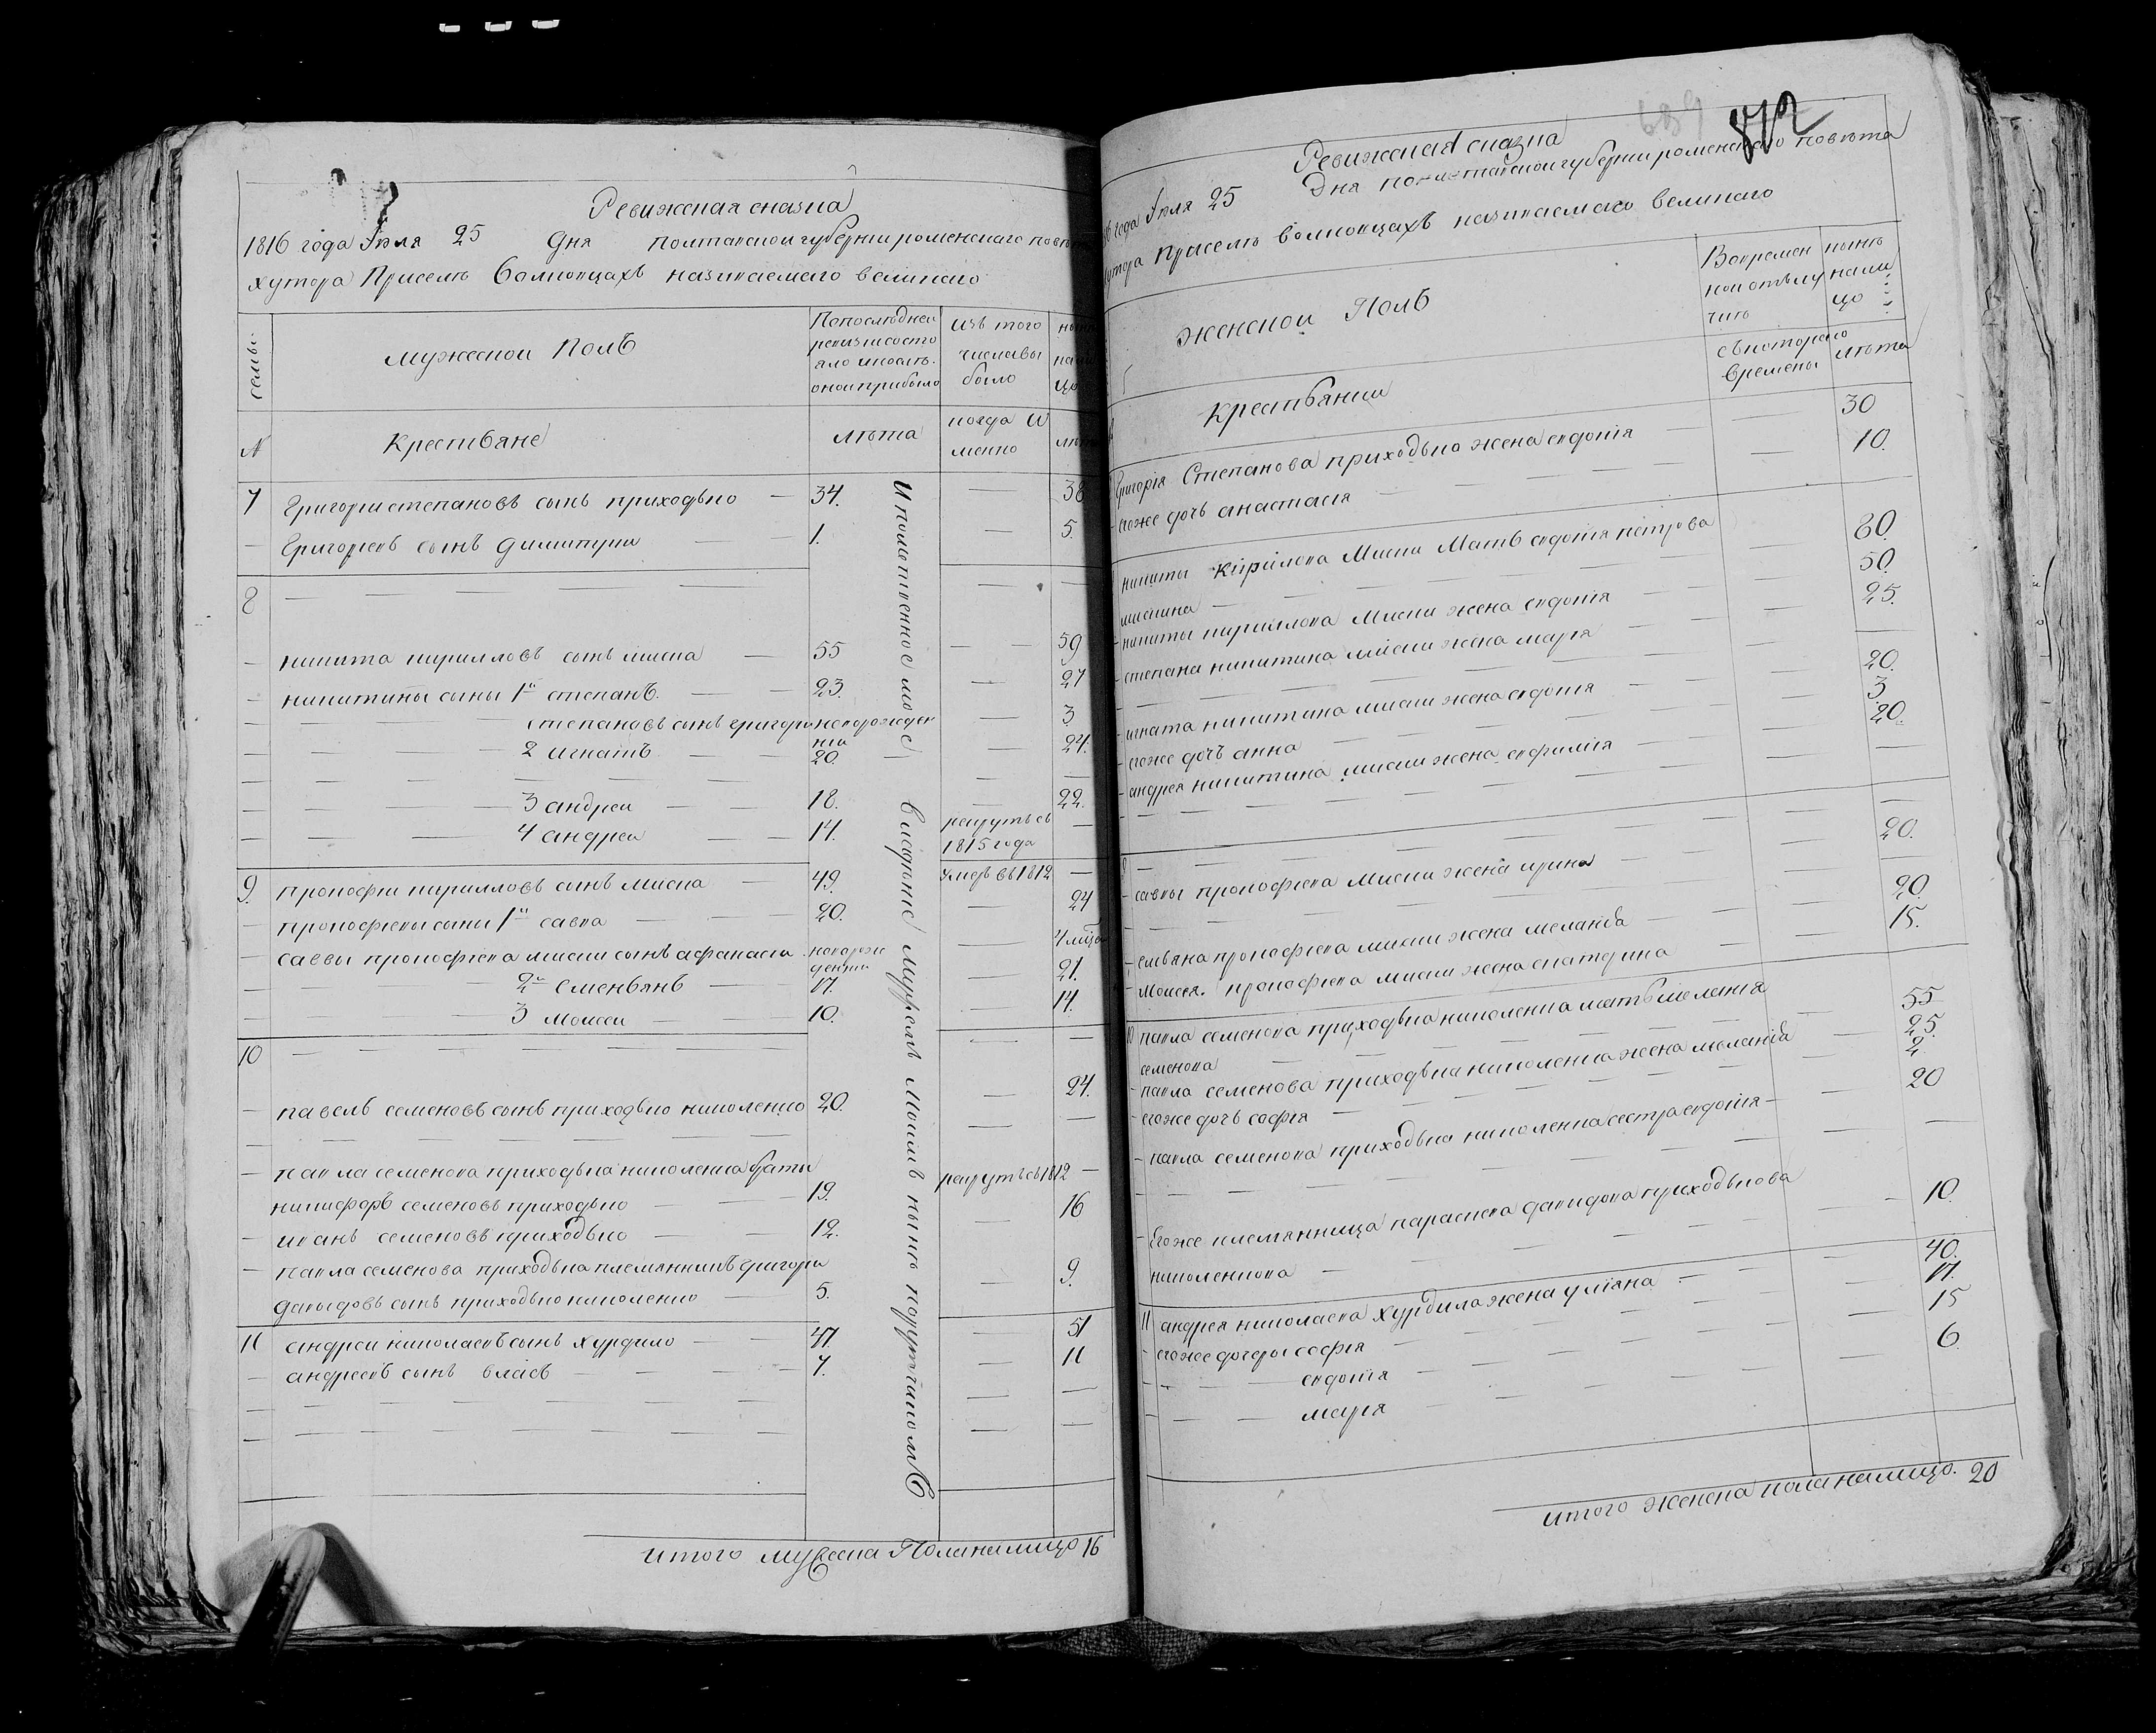 Ревижская сказка
1816 года Іюля 25 Дня полтавской губерни роменскаго повѣта
хутора Приселѣ Волковцахъ называемаго великаго
семьи
мужеской Полъ
Попоследней
ревизисосто
яло ипослѣ
онойприбыло
изъ того
числавы
было
N
Крестьяне
лѣта
когда и
менно
7 Григорий степановъ сынъ приходько — 34. — 38
— Григорьевъ сынъ димитрий — 1. — 5.
8 — — — —
— никита кирилловъ сынъ миска — 55 — — 59
— никитины сыны 1й степанъ — — 23. — 27
— степановъ сынъ григорий новорожден — 3
ній
— 2 игнатъ — — 20. — 24.
— 3 андрей — — 18. — 22.
— 4 андрей — — 14. рекрутъ съ —
1815 года
9. прокофий кирилловъ сынъ миска — 49. умеръ въ 1812 —
— прокофіевы сыны 1й савка — — 20. — 24
— саввы прокофіева миски сынъ афанасій новорож — 4 мѣца
денній
— 2й Емельянъ — 17. — 21.
— 3 Моисей — 10. — 14.
10 — — — — —
— павелъ семеновъ сынъ приходько николенко 20. — 24.
— павла семенова приходька николенка братья
никифоръ семеновъ приходько — 19. рекрутъ съ 1812 —
— иванъ семеновъ приходько — 12. — 16
— павла семенова приходька племянникъ григорий
давыдовъ сынъ приходько николенко — 5. — 9.
11 андрей николаевъ сынъ хурдило — 47. — 51
— андреевъ сынъ власъ — — 7. — 11
Итого мужеска Пола налицо 16
689
Ревижская сказка
года Іюля 25 Дня полтавской губерни роменскаго повѣта
хутора Приселѣ Волковцахъ называемаго великаго
женской Полъ
Вовремен
ной отълу
чкѣ
нынѣ
нали
цо
Крестьянки
съкотораго
времены
лѣта
Григорія Степанова приходька жена евдокія — — 30
егоже дочь анастасія — — — 10.
никиты кирилова Миски Мать евдокія петрова
мискина — — — — 80.
— никиты кириллова Миски жена евдокія — — 50.
— степана никитина миски жена марія — — 25.
— игната никитина миски жена евдокія — — 20.
— егоже дочь анна — — — 3
— андрея никитина миски жена евфимія — — 20.
— савки прокофіева Миски жена ирина — — 20.
— емельяна прокофіева миски жена меланья — — 20.
— Моисея прокофіева миски жена екатерина — — 15.
10 павла семенова приходька николенка мать меланія
семенова — — — 55
— павла семенова приходька николенка жена меланія — 25.
— егоже дочь софія — — — 2
— павла семенова приходька николенка сестра евдокія — 20
— Егоже племянница параскева давидова приходькова
николенкова — — — 10.
11 андрея николаева хурдила жена уліяна — — 40.
— егоже дочеры софія — — 17.
— евдокія — — 15
— марія — — 6.
итого женска пола налицо. 20